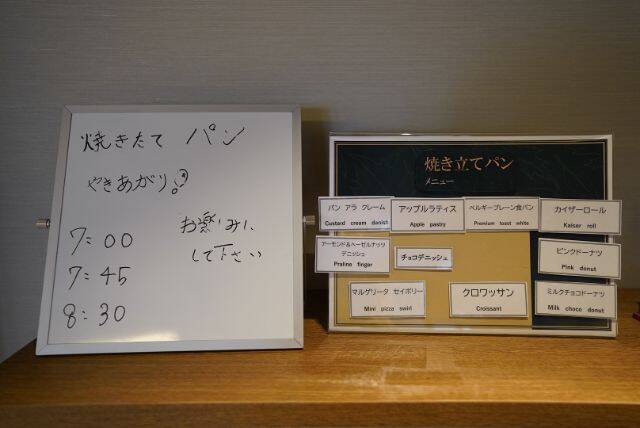 焼きたて パン
やきあがり!
お楽しみに
して下さい
7:00
7:45
8:30
焼き立てパン
メニュー
パン アラ クレーム
Custard cream danish
アップルラティス
Apple pastry
ベルギープレーン食パン
Premium toast white
カイザーロール
Kaiser roll
アーモンド&ヘーゼルナッツ
デニッシュ
Praline finger
チョコデニッシュ
ピンクドーナツ
Pink donut
マルゲリータ セイボリー
Mini pizza swirl
クロワッサン
Croissant
ミルクチョコドーナツ
Milk choco donut